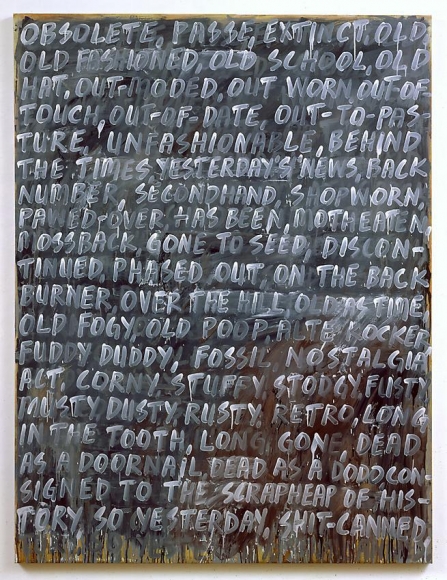 OBSOLETE, PASSÉ, EXTINCT, OLD
OLD FASHIONED, OLD SCHOOL, OLD
HAT, OUT-MODED, OUT WORN, OUT-OF
TOUCH, OUT-OF-DATE, OUT-TO-PAS-
TURE, UNFASHIONABLE, BEHIND
THE TIMES, YESTERDAY'S NEWS, BACK
NUMBER, SECONDHAND, SHOPWORN,
PAWED-OVER, HAS BEEN, MOTHEATEN,
MOSSBACK, GONE TO SEED, DISCON-
TINUED, PHASED OUT, ON THE BACK
BURNER, OVER THE HILL, OLD AS TIME,
OLD FOGY, OLD POOP, ALTE KOCKER,
FUDDY DUDDY, FOSSIL, NOSTALGIA
ACT, CORNY, STUFFY, STODGY, FUSTY
MUSTY, DUSTY, RUSTY, RETRO, LONG
IN THE TOOTH, LONG GONE, DEAD
AS A DOORNAIL, DEAD AS A DODO, CON-
SIGNED TO THE SCRAPHEAP OF HIS-
TORY, SO YESTERDAY, SHIT-CANNED,